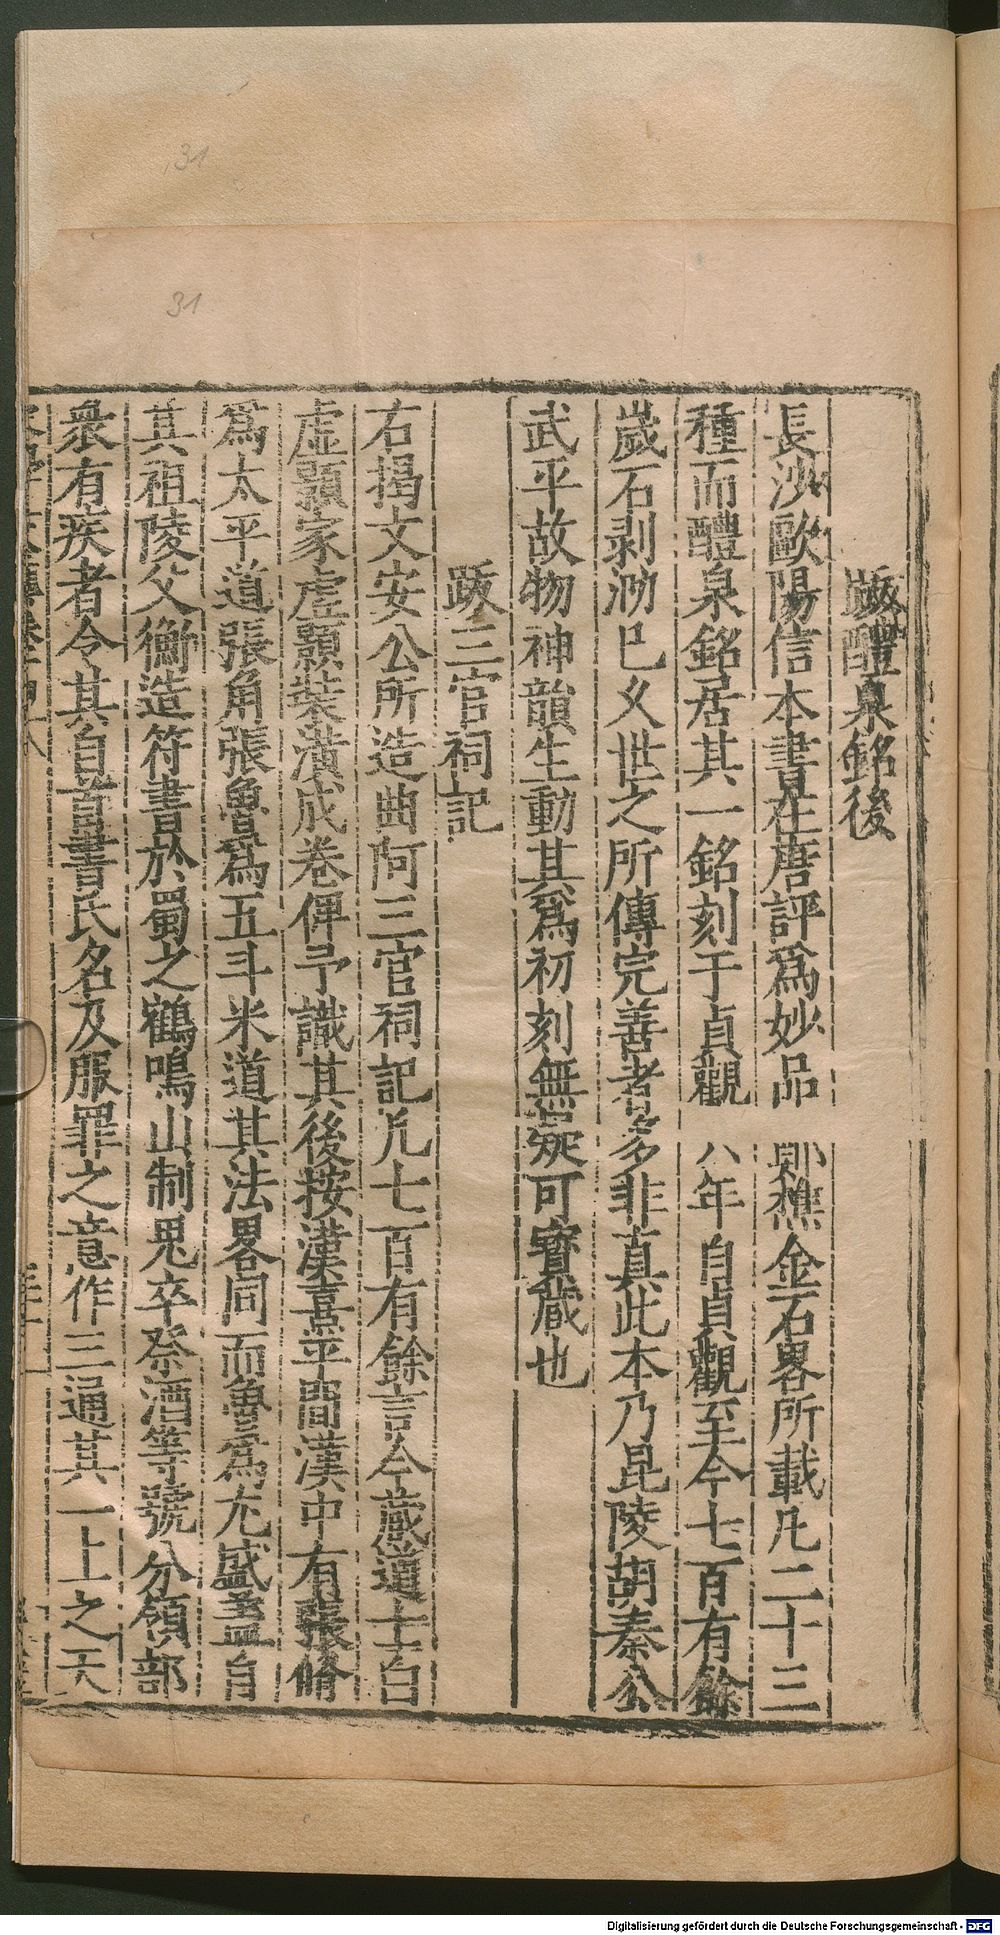 跋醴泉銘後
長沙歐陽信本書在唐評爲妙品則樵金石畧所載凡二十三
種而醴泉銘居其一銘刻于貞觀八年自貞觀至今七百有餘
歲石剥泐已乆世之所傳完善者多非真此本乃昆陵胡秦公
武平故物神韻生動其爲初刻無疑可寳藏也
跋三官祠記
右揭文安公所造曲阿三官祠記凡七百有餘言今蔵道士白
虚顥家虚顥裝潢成卷俾予識其後按漢熹平間漢中有張脩
爲太平道張角張魯爲五斗米道其法畧同而魯爲尤盛盖自
其祖陵父衡造符書於蜀之鶴鳴山制鬼卒祭酒等號分領部
衆有疾者令其自首書氏名及服罪之意作三通其一上之天
31
31
Digitalisierung gefördert durch die Deutsche Forschungsgemeinschaft - DFG